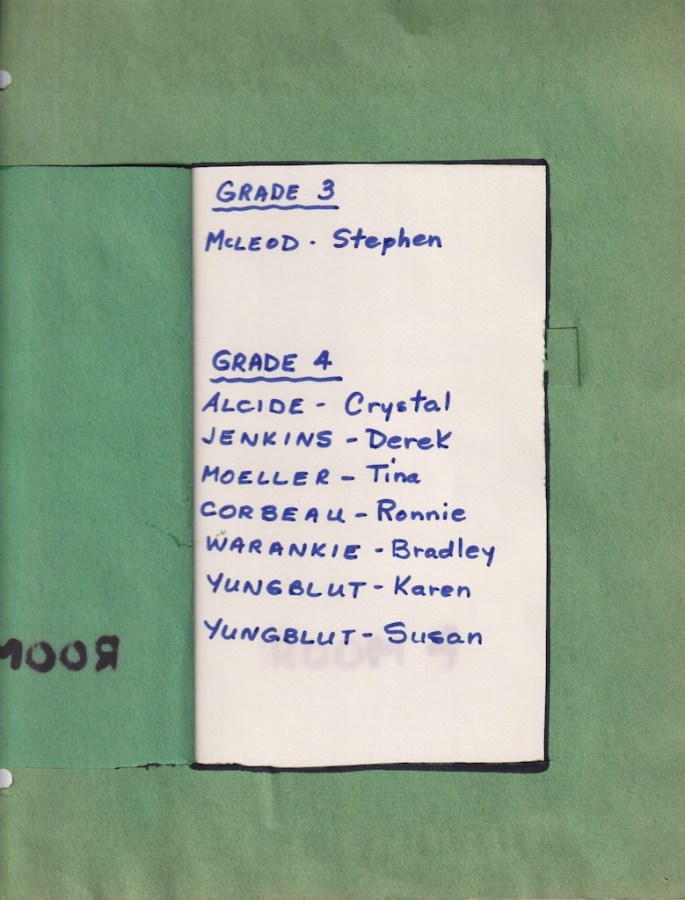 GRADE 3
McLEOD - Stephen
GRADE 4
ALCIDE - Crystal
JENKINS - Derek
MOELLER - Tina
CORBEAU - Ronnie
WARANKIE - Bradley
YUNGBLUT - Karen
YUNGBLUT - Susan
ROOM
ROOM A